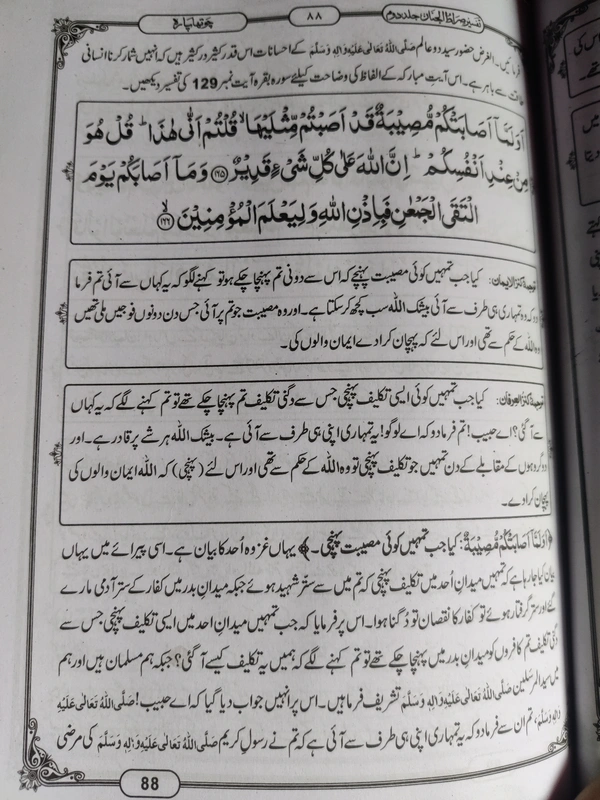 تفسیر صراط الجنان جلد دوم
۸۸
چوتھا پارہ
فرمائیں۔ الغرض حضور سید دو عالم صَلَّی اللہُ تَعَالٰی عَلَیْہِ وَاٰلِہٖ وَسَلَّمَ کے احسانات اس قدر کثیر در کثیر ہیں کہ انہیں شمار کرنا انسانی
طاقت سے باہر ہے۔ اس آیتِ مبارکہ کے الفاظ کی وضاحت کیلئے سورہ بقرہ آیت نمبر 129 کی تفسیر دیکھیں۔
اَوَلَمَّاۤ اَصَابَتْكُمْ مُّصِیْبَةٌ قَدْ اَصَبْتُمْ مِّثْلَیْهَاۙ قُلْتُمْ اَنّٰى هٰذَاؕ قُلْ هُوَ
مِنْ عِنْدِ اَنْفُسِكُمْؕ اِنَّ اللّٰهَ عَلٰى كُلِّ شَیْءٍ قَدِیْرٌ(۱۶۵) وَ مَاۤ اَصَابَكُمْ یَوْمَ
الْتَقَى الْجَمْعٰنِ فَبِاِذْنِ اللّٰهِ وَ لِیَعْلَمَ الْمُؤْمِنِیْنَۙ(۱۶۶)
ترجمۂ کنزالایمان: کیا جب تمہیں کوئی مصیبت پہنچے کہ اس سے دونی تم پہنچا چکے ہو تو کہنے لگو کہ یہ کہاں سے آئی تم فرما
دو کہ وہ تمہاری ہی طرف سے آئی بیشک اللہ سب کچھ کرسکتا ہے۔ اور وہ مصیبت جو تم پر آئی جس دن دونوں فوجیں ملی تھیں
وہ اللہ کے حکم سے تھی اور اس لئے کہ پہچان کرا دے ایمان والوں کی۔
ترجمۂ کنزالعرفان: کیا جب تمہیں کوئی ایسی تکلیف پہنچی جس سے دگنی تکلیف تم پہنچا چکے تھے تو تم کہنے لگے کہ یہ کہاں
سے آگئی؟ اے حبیب! تم فرما دو کہ اے لوگو! یہ تمہاری اپنی ہی طرف سے آئی ہے۔ بیشک اللہ ہر شے پر قادر ہے۔ اور
دو گروہوں کے مقابلے کے دن تمہیں جو تکلیف پہنچی تو وہ اللہ کے حکم سے تھی اور اس لئے (پہنچی) کہ اللہ ایمان والوں کی
پہچان کرا دے۔
﴿اَوَلَمَّاۤ اَصَابَتْكُمْ مُّصِیْبَةٌ: کیا جب تمہیں کوئی مصیبت پہنچی۔﴾ یہاں غزوہ اُحد کا بیان ہے۔ اسی پیرائے میں یہاں
بیان کیا جارہا ہے کہ تمہیں میدانِ اُحد میں تکلیف پہنچی کہ تم میں سے ستّر شہید ہوئے جبکہ میدانِ بدر میں کفار کے ستر آدمی مارے
گئے اور ستر گرفتار ہوئے تو کفار کا نقصان تو دُگنا ہوا۔ اس پر فرمایا کہ جب تمہیں میدانِ احد میں ایسی تکلیف پہنچی جس سے
دگنی تکلیف تم کافروں کو میدانِ بدر میں پہنچا چکے تھے تو تم کہنے لگے کہ ہمیں یہ تکلیف کیسے آگئی؟ جبکہ ہم مسلمان ہیں اور ہم
میں سید المرسلین صَلَّی اللہُ تَعَالٰی عَلَیْہِ وَاٰلِہٖ وَسَلَّمَ تشریف فرما ہیں۔ اس پر انہیں جواب دیا گیا کہ اے حبیب! صَلَّی اللہُ تَعَالٰی عَلَیْہِ
وَاٰلِہٖ وَسَلَّمَ، تم ان سے فرما دو کہ یہ تمہاری اپنی ہی طرف سے آئی ہے کہ تم نے رسولِ کریم صَلَّی اللہُ تَعَالٰی عَلَیْہِ وَاٰلِہٖ وَسَلَّمَ کی مرضی
88